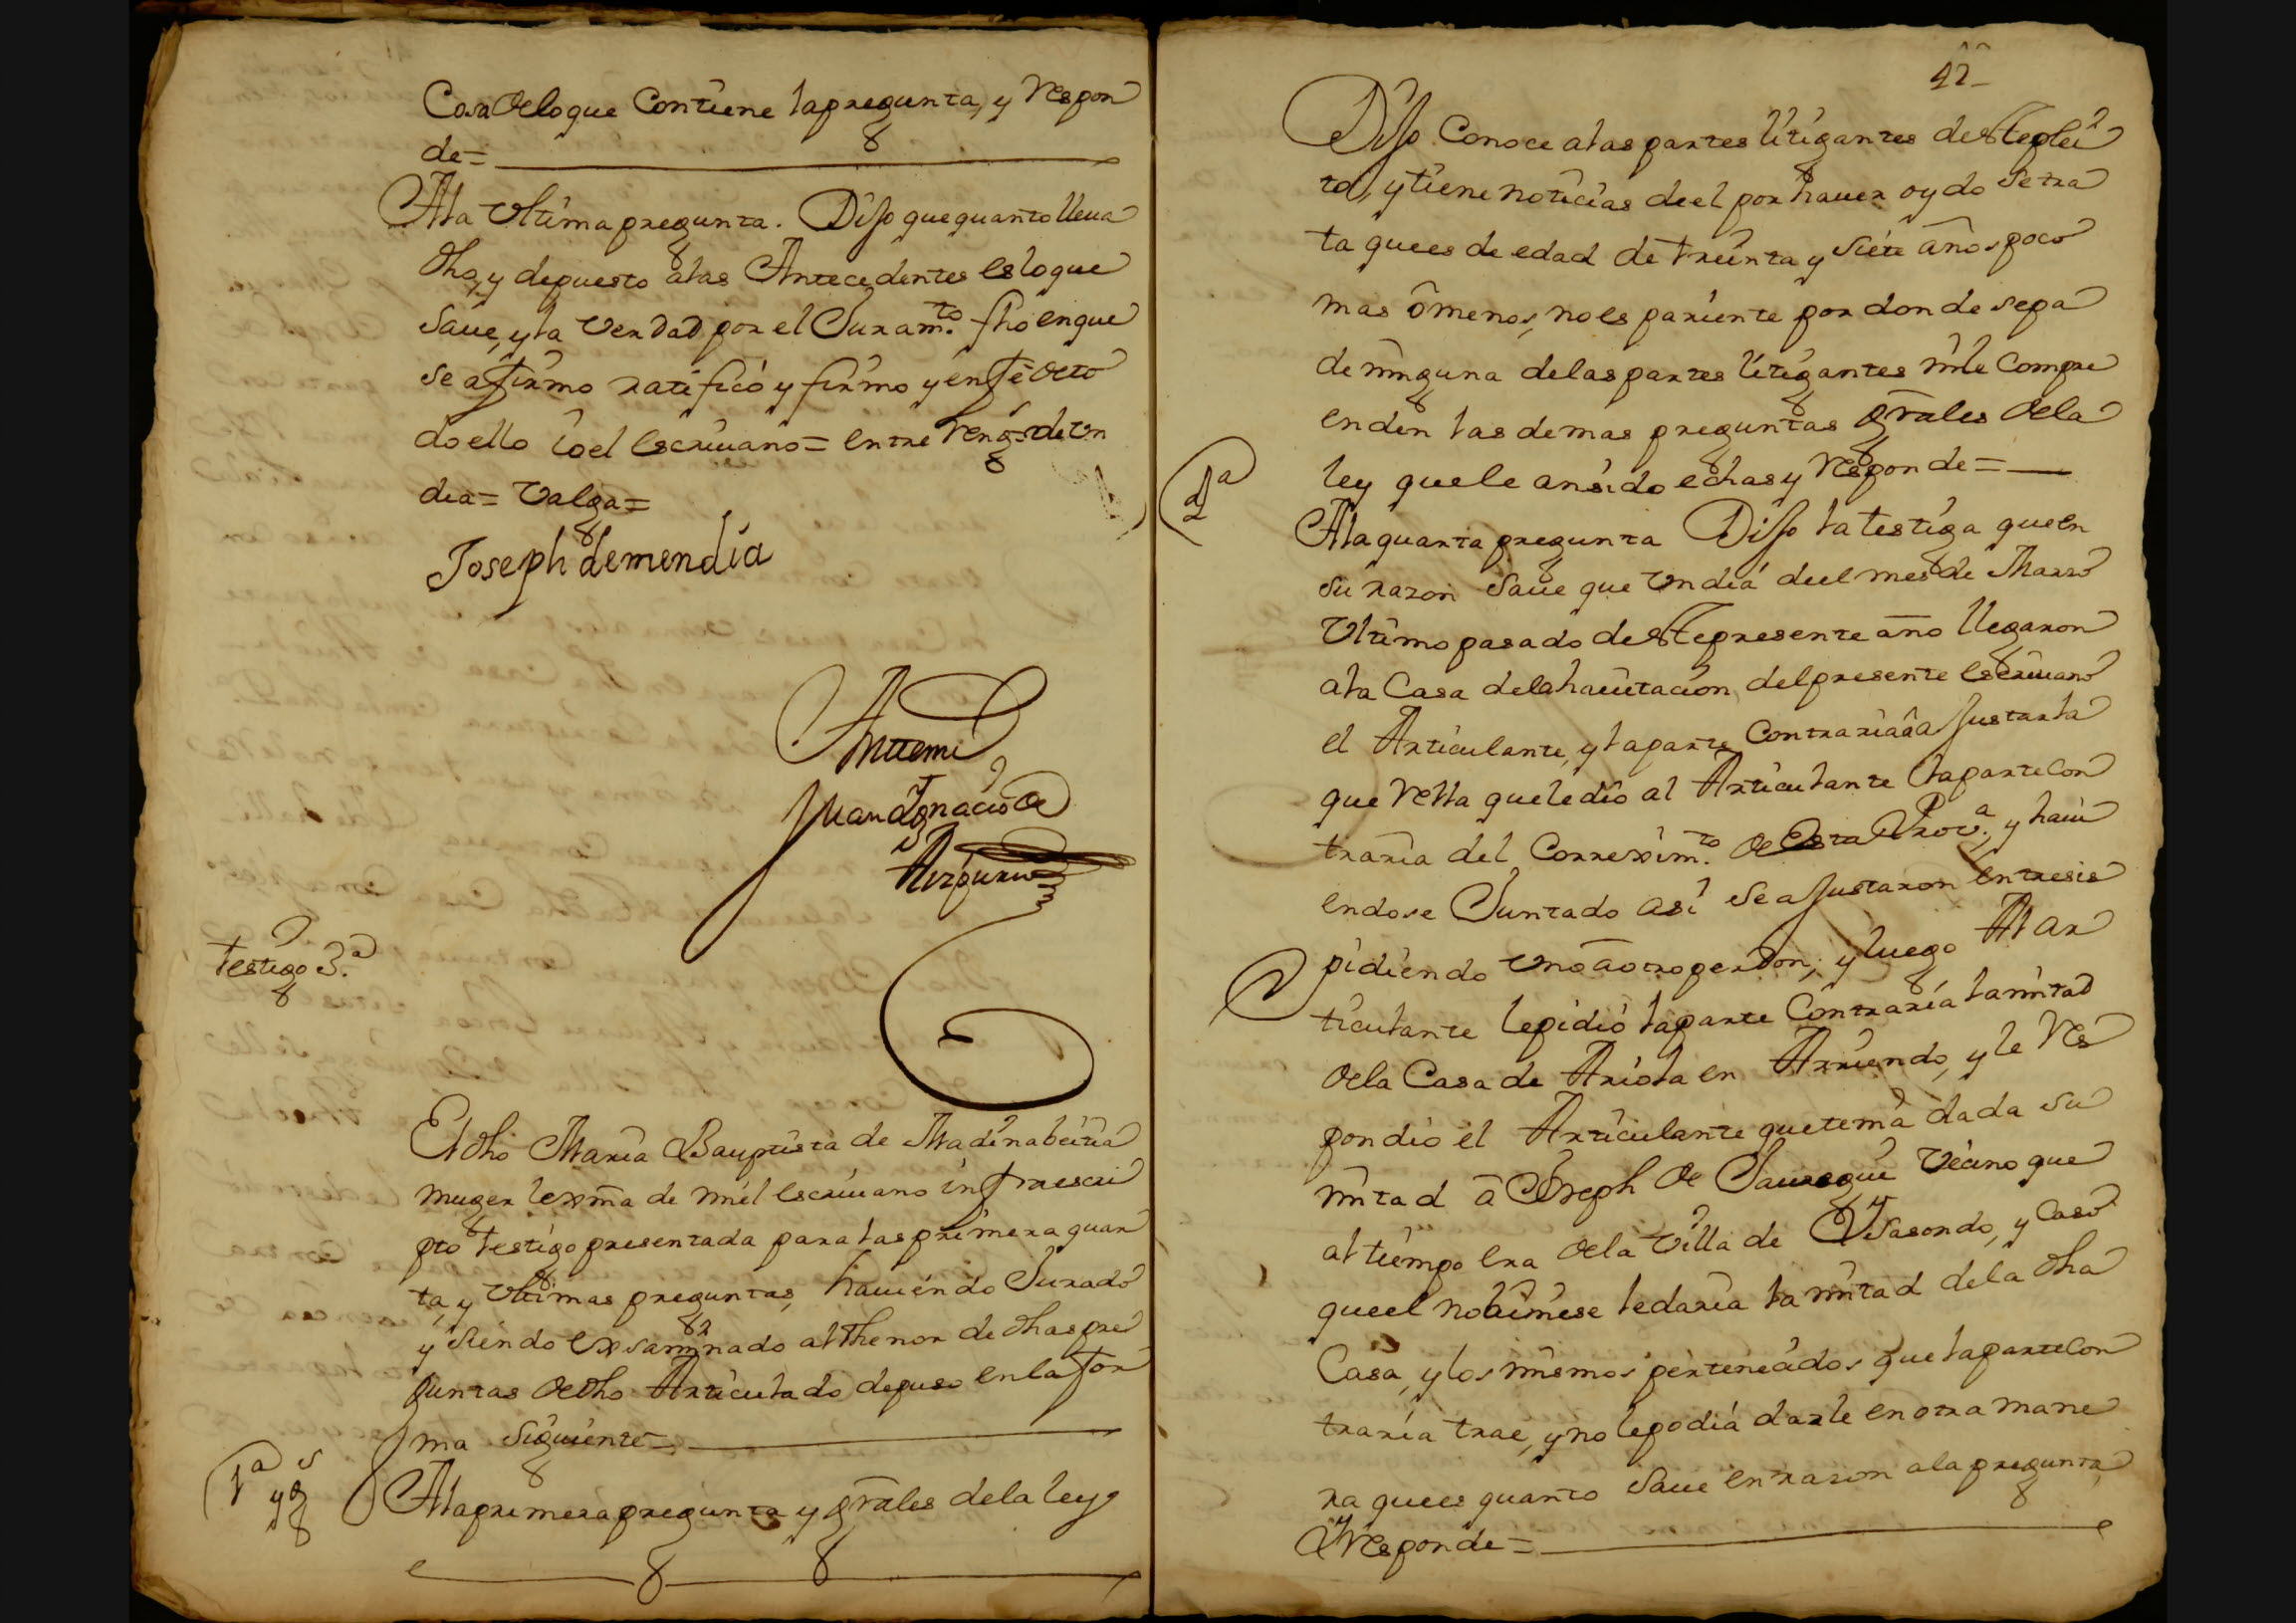 Cosa delo que Contiene lapregunta, y Respon
de=
Ala Vltima pregunta. Dijo que quanto lleua
dho, y depuesto alas Antecedentes es lo que
saue, y la Verdad por el Juram.to fho en que
se afirmo ratificó y firmo y en fee de to
do ello Yo el escriuano = entre Reng.s de Vn
dia = Valga =
Joseph de mendia
Antemi
Juan Ignacio de
Aizpuru
testigo 3.a
El dho Maria Bauptista de Madinabeitia
muger lexma de mi el escriuano infraescri
pto testigo presentada para las primera quar
ta, y Vltimas preguntas, hauiendo Jurado
y siendo exsaminado al thenor de dhas pre
guntas de dho Articulado depuso en la for
ma siguiente =
1a y g.s
Ala primera pregunta y grales de la ley
42
Dijo Conoce alas partes litigantes deste plei
to, y tiene noticias de el por hauer oydo se tra
ta que es de edad de treinta y siete años poco
mas ô menos, no es pariente por donde sepa
de ninguna de las partes litigantes ni le Compre
enden las demas preguntas grales de la
ley que le an sido echas y Responde =
4a
Ala quarta pregunta Dijo la testiga que en
su razon saue que Vn dia de el mes de Marzo
Vltimo pasado deste presente año llegaron
ala Casa de la hauitacion del presente escriuano
el Articulante, y la parte Contraria â ajustar la
que Rella que le dio al Articulante la parte Con
traria del Correxim.to de esta Prov.a, y haui
endose Juntado asi se ajustaron entre sis
pidiendo Vno â otro perdon, y luego Al ar
ticulante le pidió la parte Contraria la mitad
de la Casa de Ariola en Arriendo, y le Res
pondio el Articulante que tenia dada su
mitad â Joseph de Jauregui Vecino que
al tiempo era de la Villa de Vsasondo, y Caso
que el no biniese le daria la mitad de la dha
Casa, y los mismos pertenecidos que la parte Con
traria trae, y no le podia darle en otra mane
ra que es quanto saue en razon ala pregunta
Y Responde =